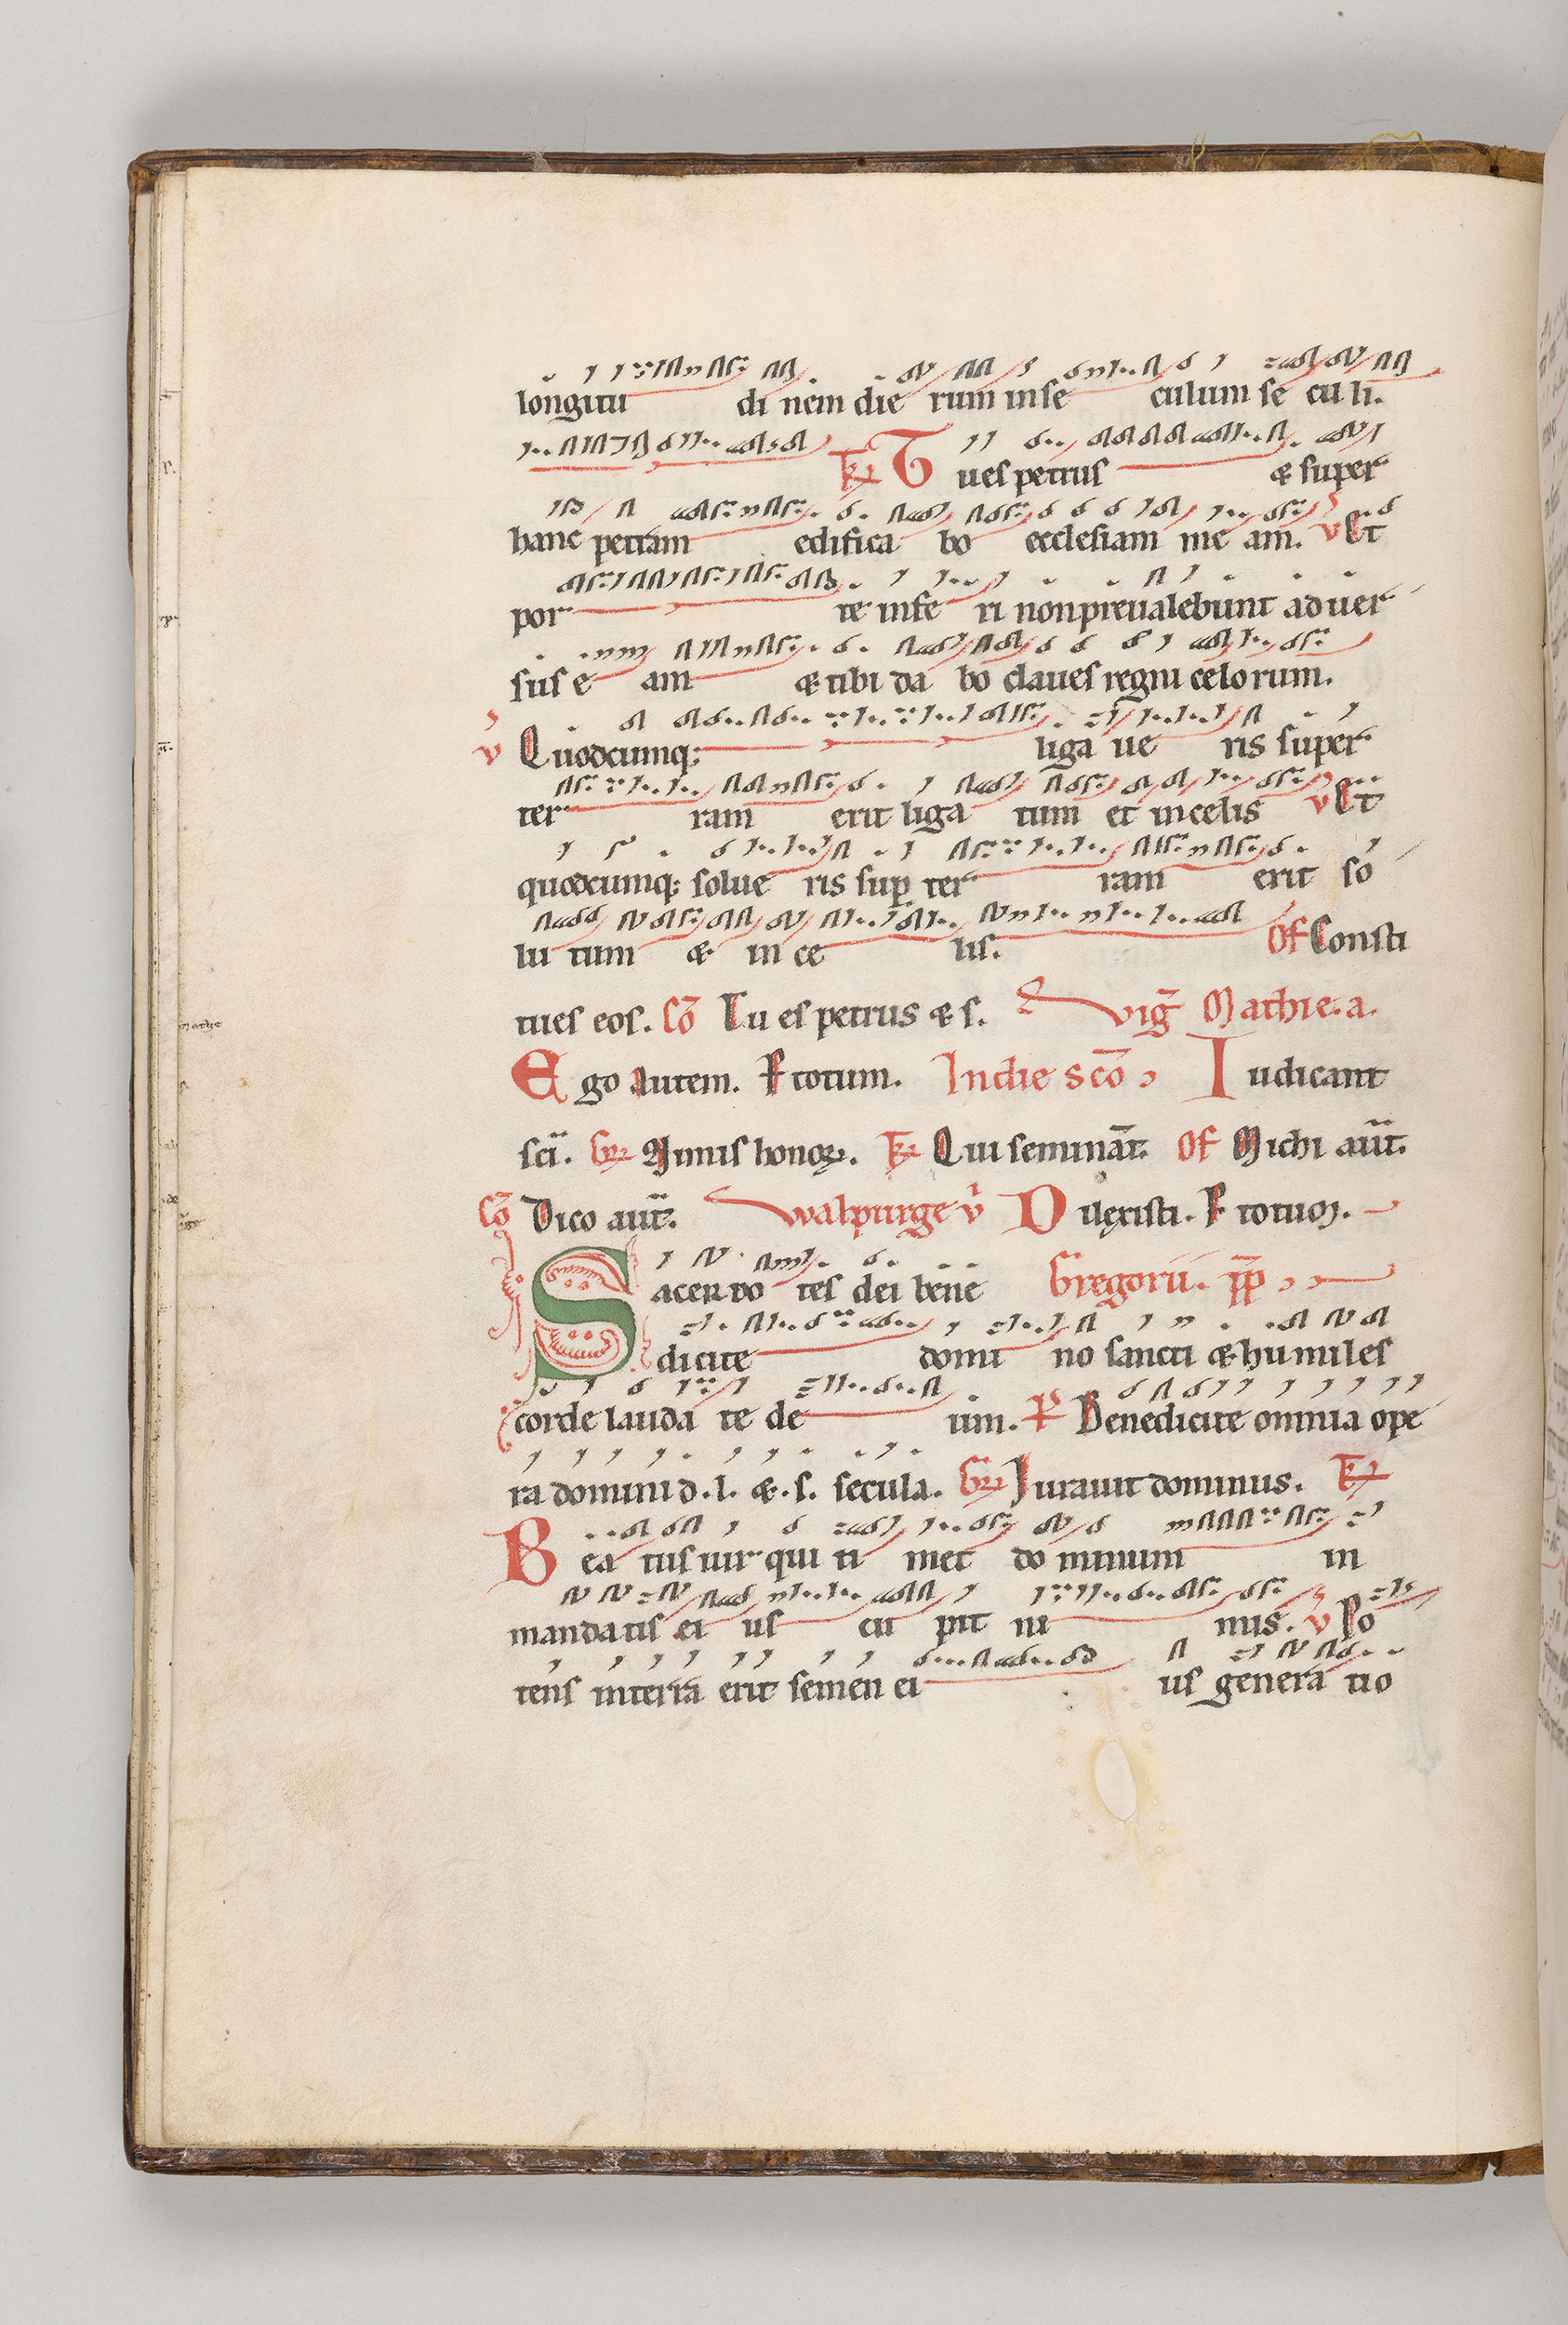 longitu di nem die rum in se culum se cu li.
Tr Tu es petrus & super
hanc petram edifica bo ecclesiam me am. V Et
por te infe ri non preualebunt aduer
sus e am & tibi da bo claues regni celorum.
V Quodcumq; liga ue ris super
ter ram erit liga tum et in celis V Et
quodcumq; solue ris sup ter ram erit so
lu tum & in ce lis. Of Consti
tues eos. Co Tu es petrus & s. Vig Mathie. a.
Ego autem. P totum. In die sco Iudicant
sci. Gr Nimis honor. Tr Qui seminant. Of Michi aut.
Co Dico aut. Walpurge v Dilexisti. P totum.
Sacerdo tes dei bene Gregorii. pp
dicite domi no sancti & humiles
corde lauda te de um. P Benedicite omnia ope
ra domini d. l. &. s. secula. Gr Iurauit dominus. Tr
Bea tus uir qui ti met do minum in
mandatis ei us cu pit ni mis. V Po
tens in terra erit semen ei us genera tio